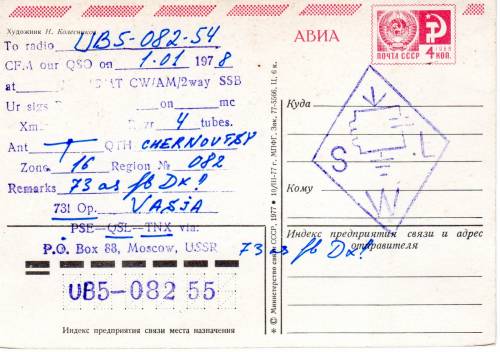 Художник Н. Колесников
АВИА
ПОЧТА СССР 4 КОП.
To radio UB5-082-54
CFM our QSO on 1.01 1978
at GMT CW/AM/2way SSB
Ur sigs on mc
Xm 4 tubes.
Ant QTH CHERNOVTSY
Zone 16 Region № 082
Remarks 73 as fb Dx!
731 Op. VASJA
PSE-QSL-TNX via:
P.O. Box 88, Moscow, USSR
UB5-082 55
Индекс предприятия связи места назначения
© Министерство связи СССР, 1977 • 10/III-77 г. МПФГ. Зак. 77-5566. Ц. 6 к.
Куда
Кому
S W L
Индекс предприятия связи и адрес
отправителя
73 as fb Dx!